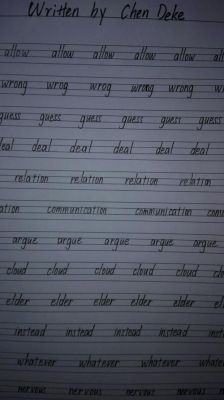 Written by Chen Deke
allow allow allow allow allow
wrong wrog wrog wrong wrong w
guess guess guess guess guess guess
eal deal deal deal deal deal
relation relation relation relation
ation communication communication comu
argue argue argue argue argue
cloud cloud cloud cloud cloud clo
elder elder elder elder elder el
instead instead instead instead inst
whatever whatever whatever whate
nervous nervous nervous nervous